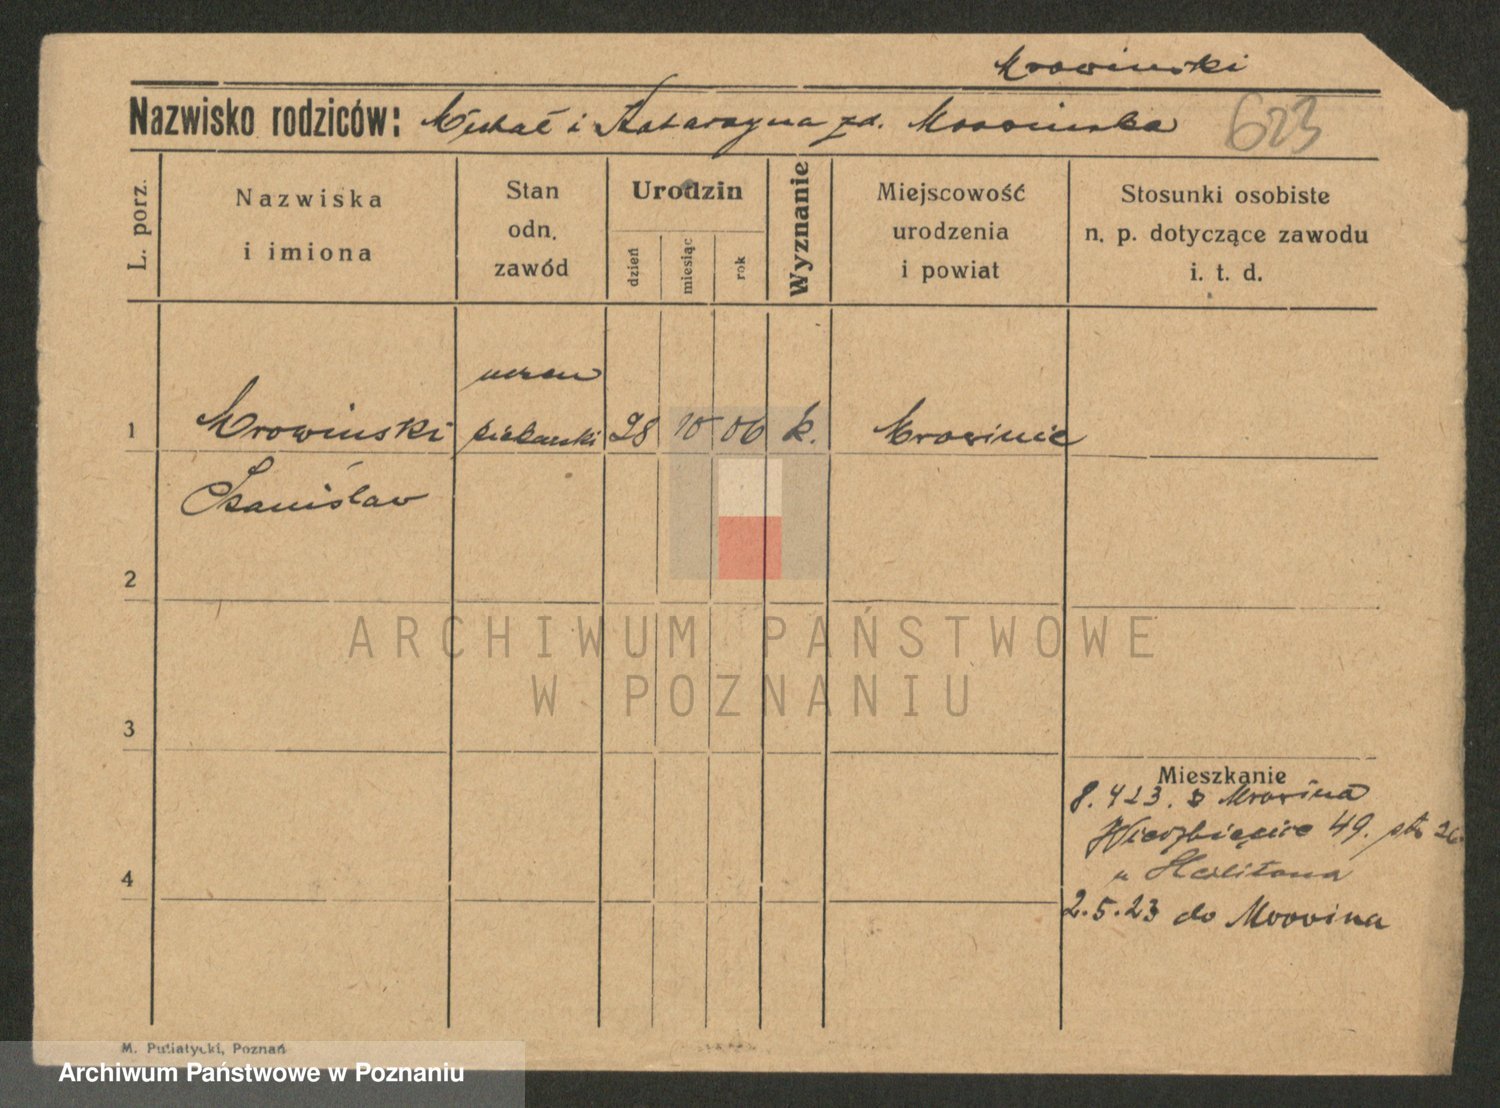 Mrowinski
Nazwisko rodziców: Michał i Katarzyna zd. Mrowinska 623
L. porz.
Nazwiska
i imiona
Stan
odn.
zawód
Urodzin
dzień
miesiąc
rok
Wyznanie
Miejscowość
urodzenia
i powiat
Stosunki osobiste
n. p. dotyczące zawodu
i. t. d.
uczen
1 Mrowinski piekarski 28 10 06 k. Mrowinie
Stanisław
2
ARCHIWUM PAŃSTWOWE
W POZNANIU
3
Mieszkanie
8.4 23. z Mrowina
Wierzbięcice 49.
u
4
2.5.23 do Mrowina
M. Putiatycki, Poznań
Archiwum Państwowe w Poznaniu